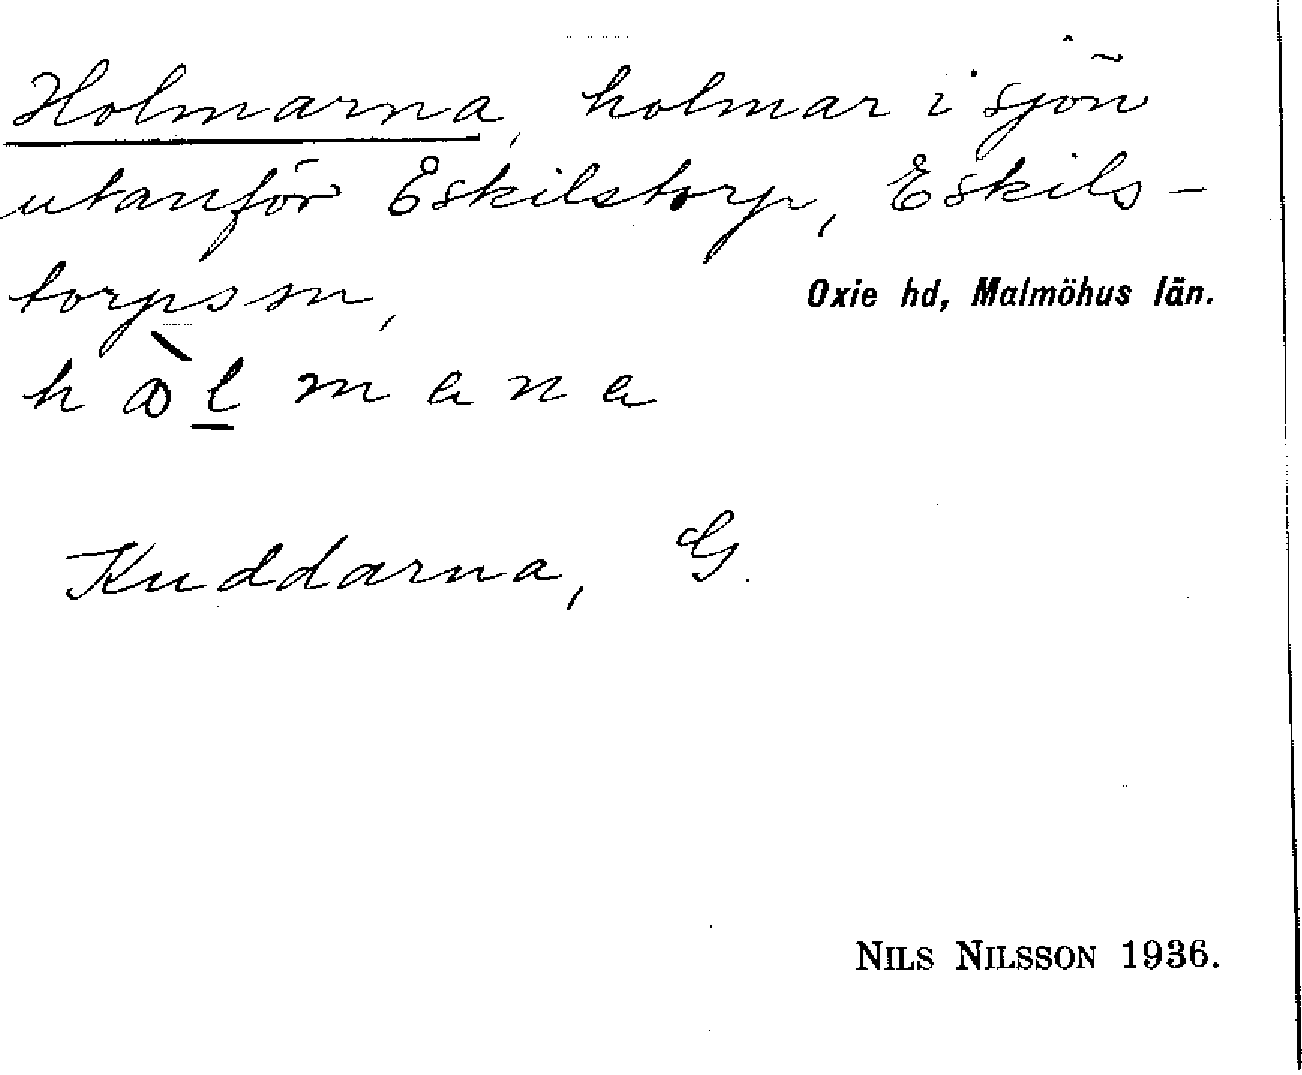 Holmarna, holmar i sjön
utanför Eskilstorp, Eskils-
torps sn,
Oxie hd, Malmöhus län.
hòlmana
Kuddarna, G.
NILS NILSSON 1936.